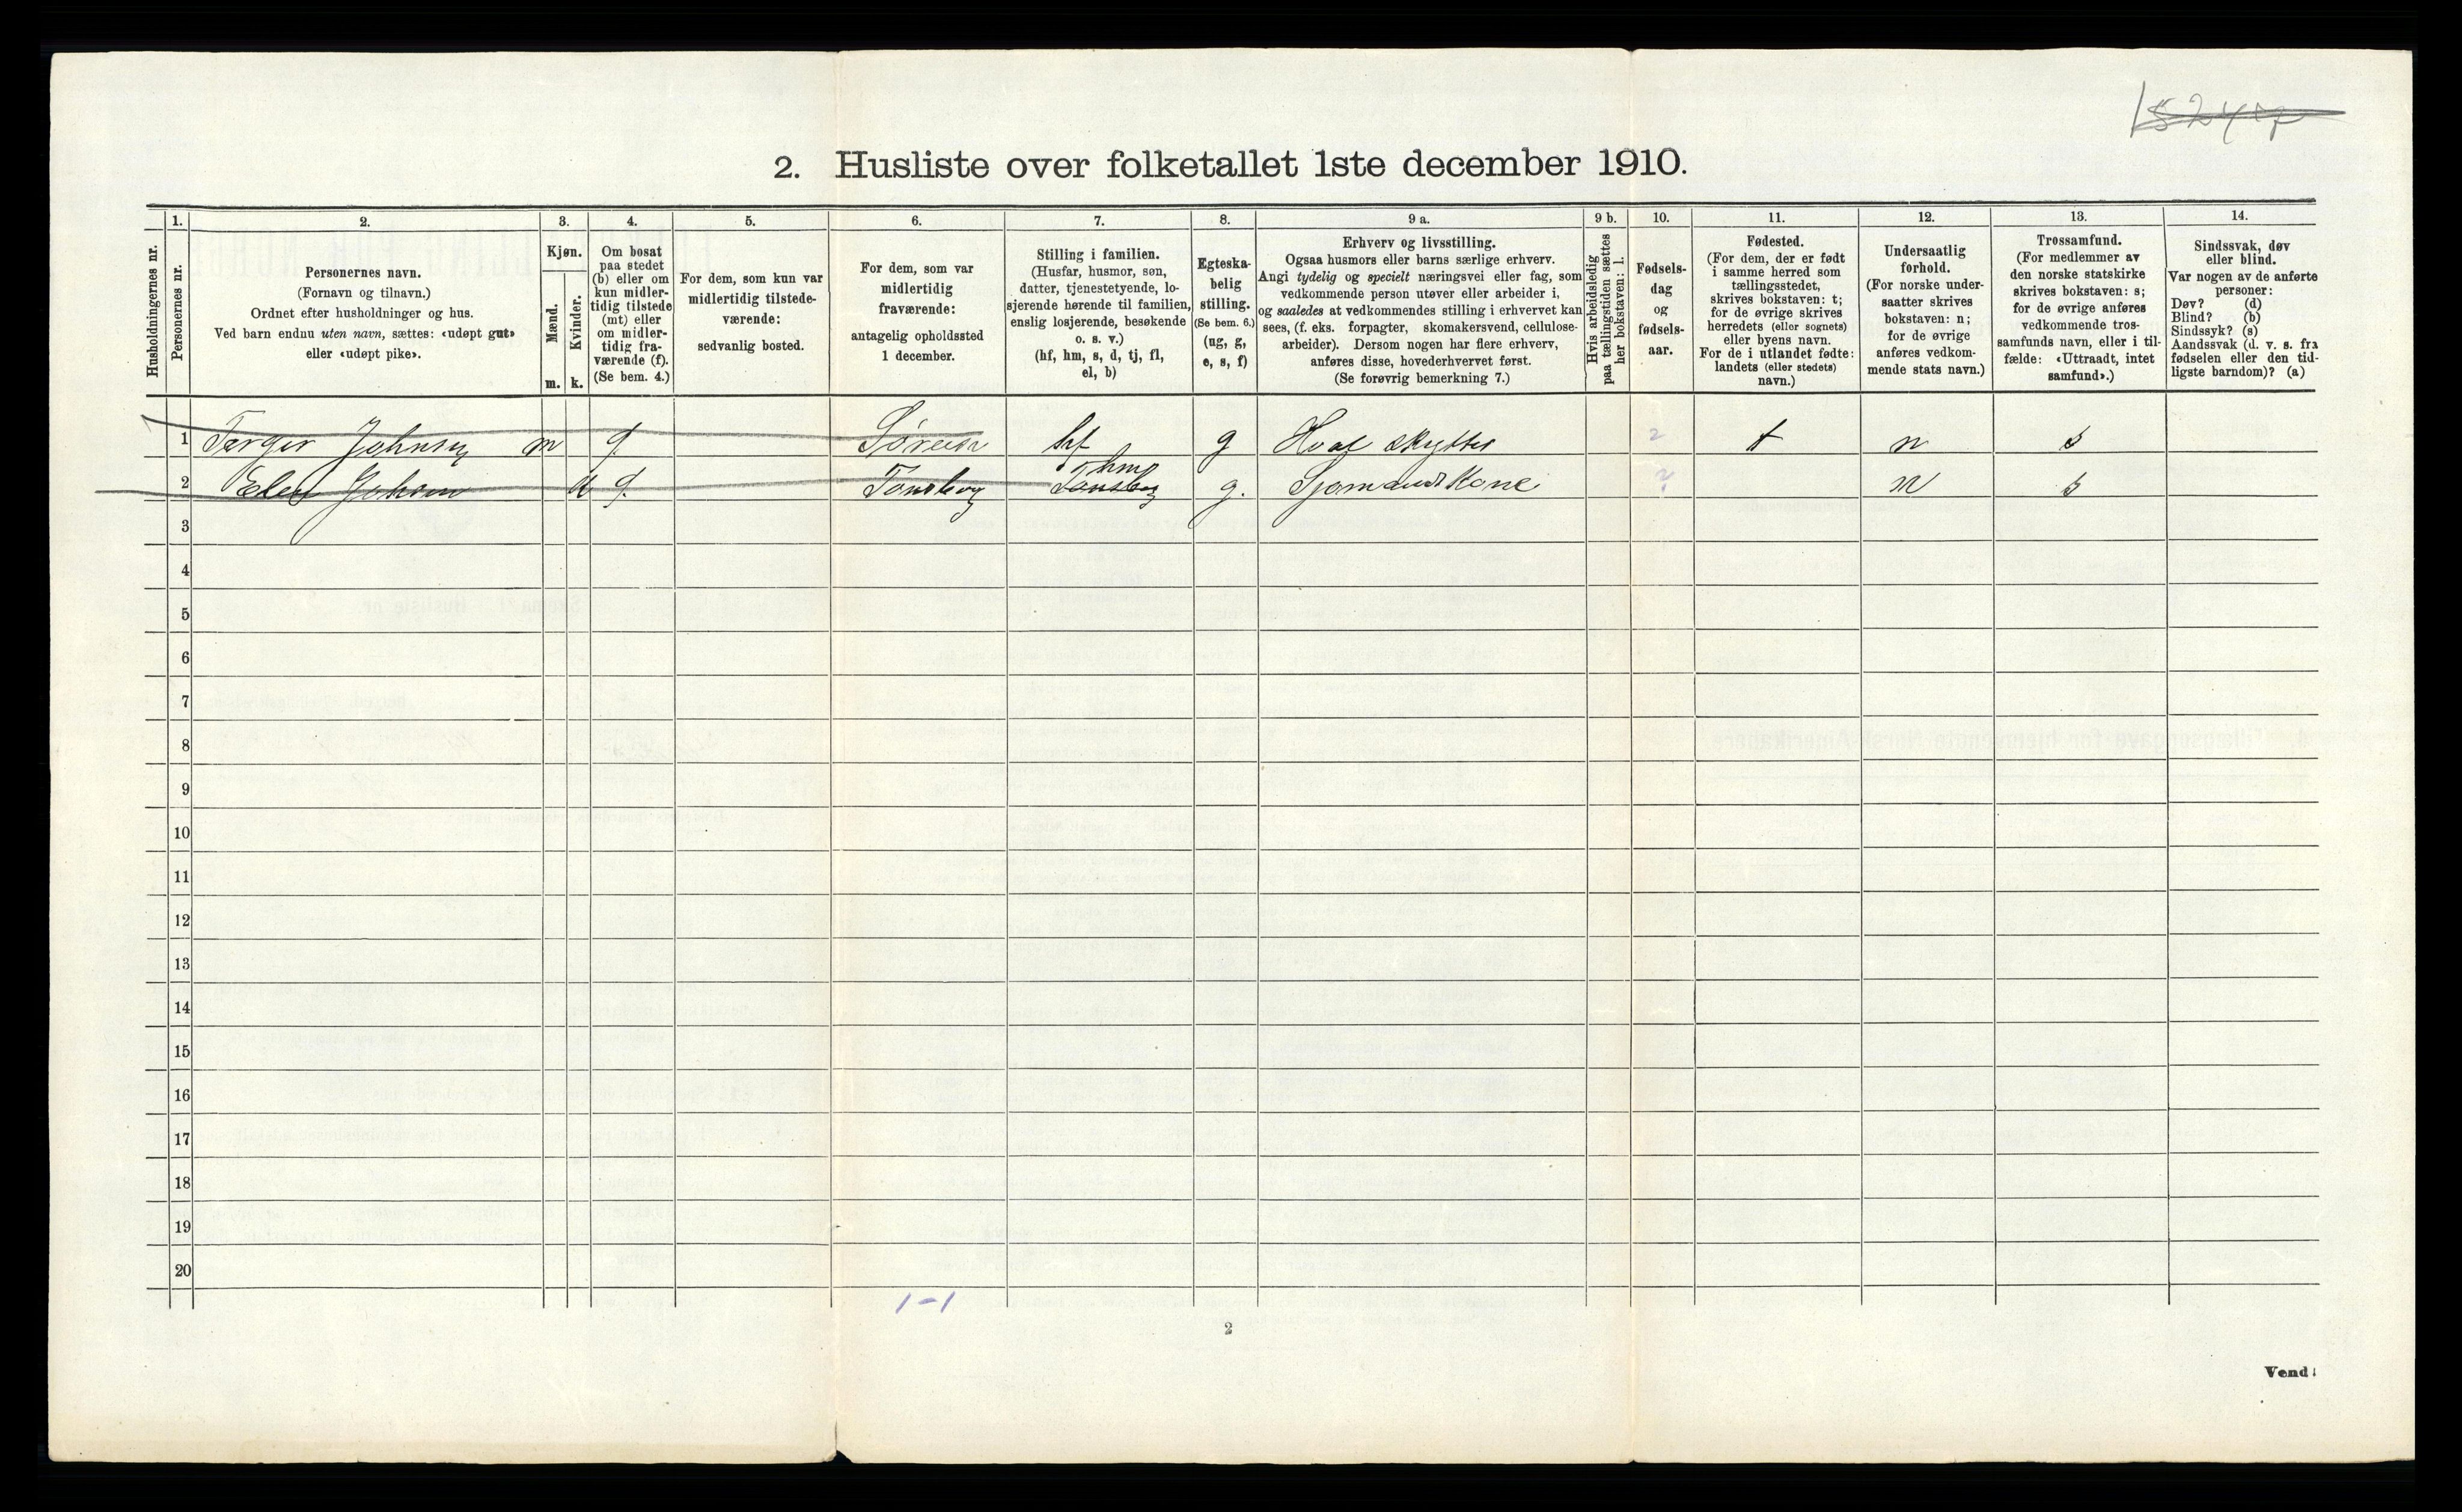 2. Husliste over folketallet 1ste december 1910.
Husholdningernes nr.
1.
Personernes nr.
2.
Personernes navn.
(Fornavn og tilnavn.)
Ordnet efter husholdninger og hus.
Ved barn endnu uten navn, sættes: «udøpt gut»
eller «udøpt pike».
3.
Kjøn.
Mænd.
m.
Kvinder.
k.
4.
Om bosat
paa stedet
(b) eller om
kun midler-
tidig tilstede
(mt) eller
om midler-
tidig fra-
værende (f).
(Se bem. 4.)
5.
For dem, som kun var
midlertidig tilstede-
værende:
sedvanlig bosted.
6.
For dem, som var
midlertidig
fraværende:
antagelig opholdssted
1 december.
7.
Stilling i familien.
(Husfar, husmor, søn,
datter, tjenestetyende, lo-
sjerende hørende til familien,
enslig losjerende, besøkende
o. s. v.)
(hf, hm, s, d, tj, fl,
el, b)
8.
Egteska-
belig
stilling.
(Se bem. 6.)
(ug, g,
e, s, f)
9 a.
Erhverv og livsstilling.
Ogsaa husmors eller barns særlige erhverv.
Angi tydelig og specielt næringsvei eller fag, som
vedkommende person utøver eller arbeider i,
og saaledes at vedkommendes stilling i erhvervet kan
sees, (f. eks. forpagter, skomakersvend, cellulose-
arbeider). Dersom nogen har flere erhverv,
anføres disse, hovederhvervet først.
(Se forøvrig bemerkning 7.)
9 b.
Hvis arbeidsledig
paa tællingstiden sættes
her bokstaven: l.
10.
Fødsels-
dag
og
fødsels-
aar.
11.
Fødested.
(For dem, der er født
i samme herred som
tællingsstedet,
skrives bokstaven: t;
for de øvrige skrives
herredets (eller sognets)
eller byens navn.
For de i utlandet fødte:
landets (eller stedets)
navn.)
12.
Undersaatlig
forhold.
(For norske under-
saatter skrives
bokstaven: n;
for de øvrige
anføres vedkom-
mende stats navn.)
13.
Trossamfund.
(For medlemmer av
den norske statskirke
skrives bokstaven: s;
for de øvrige anføres
vedkommende tros-
samfunds navn, eller i til-
fælde: «Uttraadt, intet
samfund».)
14.
Sindssvak, døv
eller blind.
Var nogen av de anførte
personer:
Døv? (d)
Blind? (b)
Sindssyk? (s)
Aandssvak (d. v. s. fra
fødselen eller den tid-
ligste barndom)? (a)
1 Johnsen m hf g Hval skytter ? t n s
2 Tønsberg hm Tønsberg g. Sjømands Kone ? n s
3
4
5
6
7
8
9
10
11
12
13
14
15
16
17
18
19
20
1-1
2
Vend!